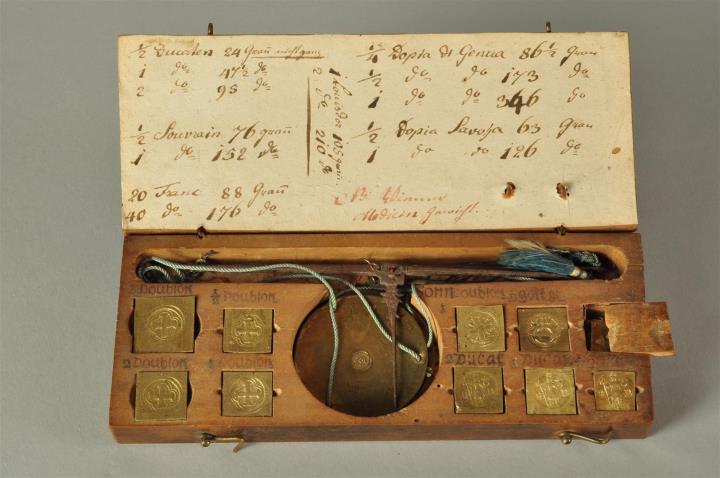 ½ Ducaten 24 Grañ
1 do 47½ do
2 do 95 do
½ Souvrain 76 grañ
1 do 152 do
20 Franc 88 Grañ
40 do 176 do
1 Louisdor 105
2 do 210 do
¼ Dopia di Genua 86½ Gran
½ do do 173 do
1 do do 346 do
½ Dopia Savoja 63 Gran
1 do do 126 do
Medicin Gewicht.
2 Doublon
½ Doublon
2 Doublon
2 Ducat
Ducat